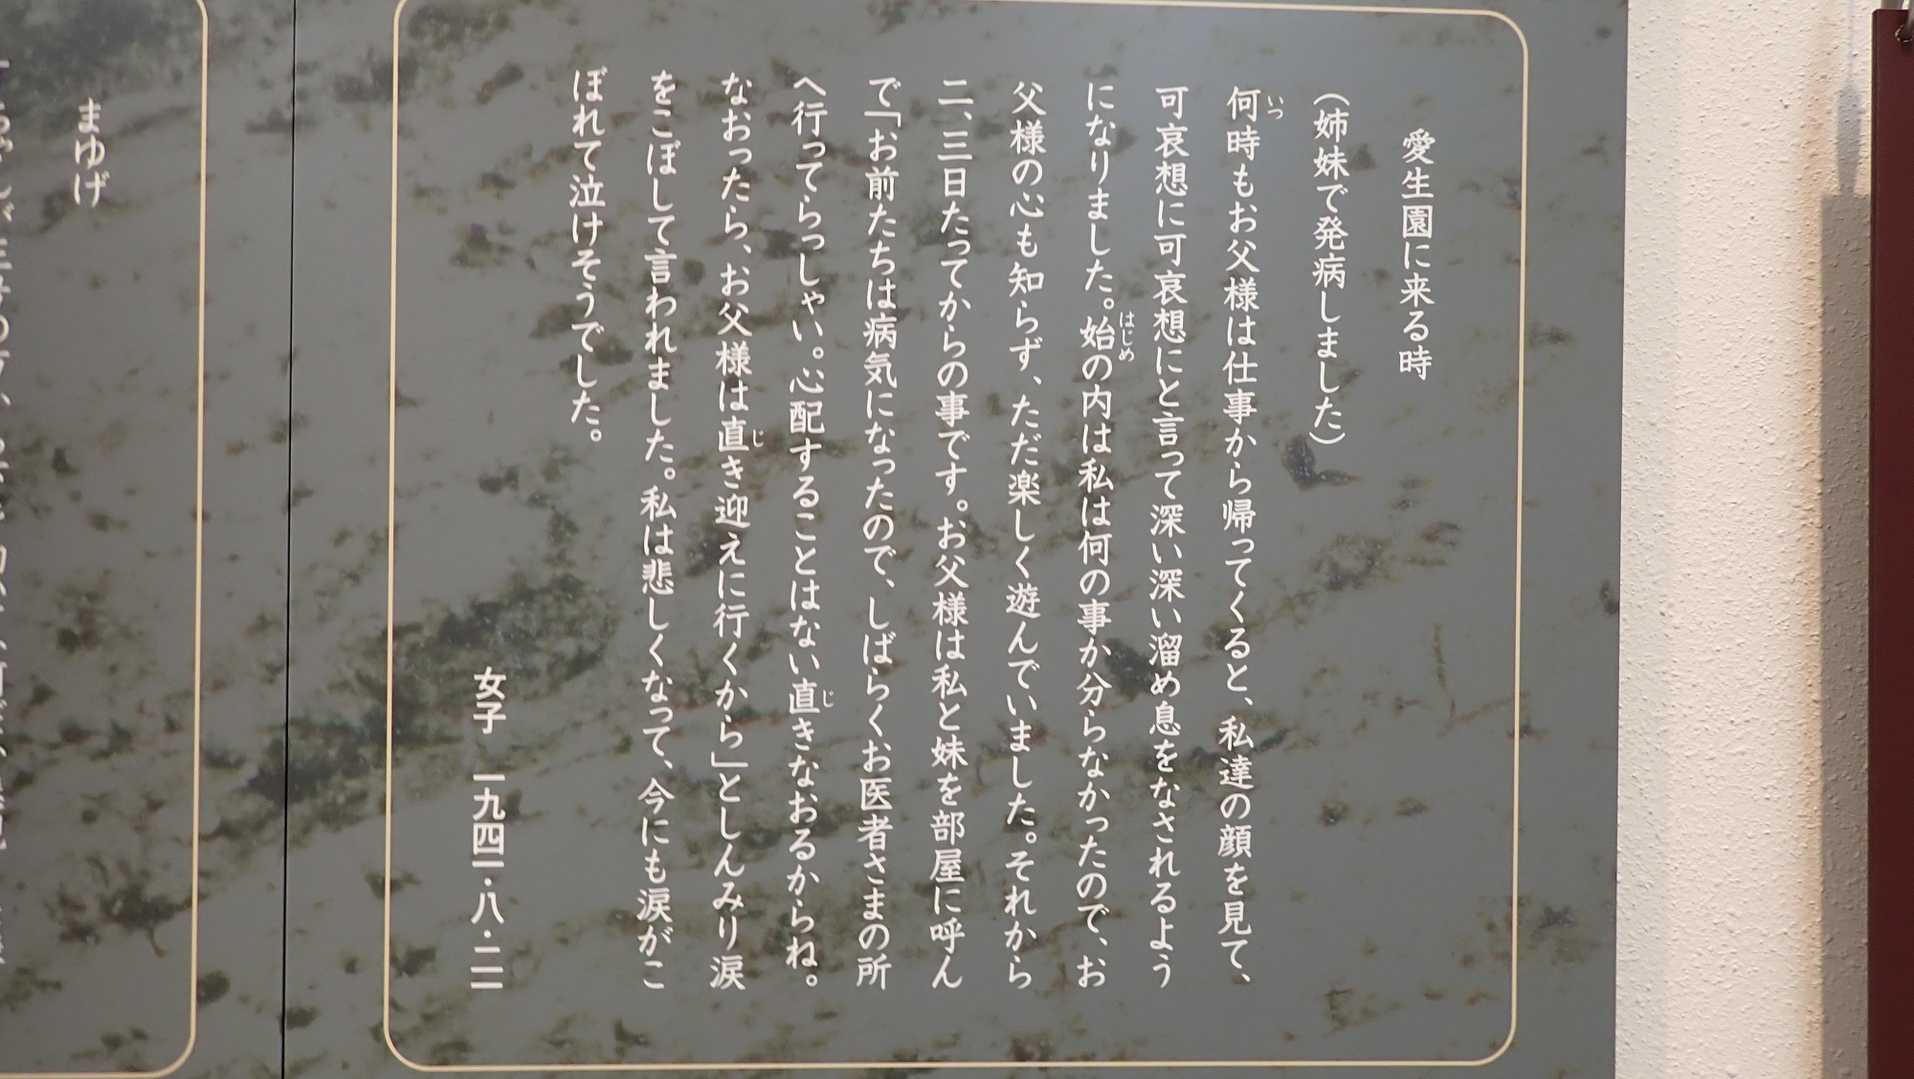 愛生園に来る時
（姉妹で発病しました）
何時もお父様は仕事から帰ってくると、私達の顔を見て、
いつ
可哀想に可哀想にと言って深い深い溜め息をなされるよう
になりました。始の内は私は何の事か分らなかったので、お
はじめ
父様の心も知らず、ただ楽しく遊んでいました。それから
二、三日たってからの事です。お父様は私と妹を部屋に呼ん
で「お前たちは病気になったので、しばらくお医者さまの所
へ行ってらっしゃい。心配することはない直きなおるからね。
じ
なおったら、お父様は直き迎えに行くから」としんみり涙
じ
をこぼして言われました。私は悲しくなって、今にも涙がこ
ぼれて泣けそうでした。
女子　一九四一・八・二一
まゆげ